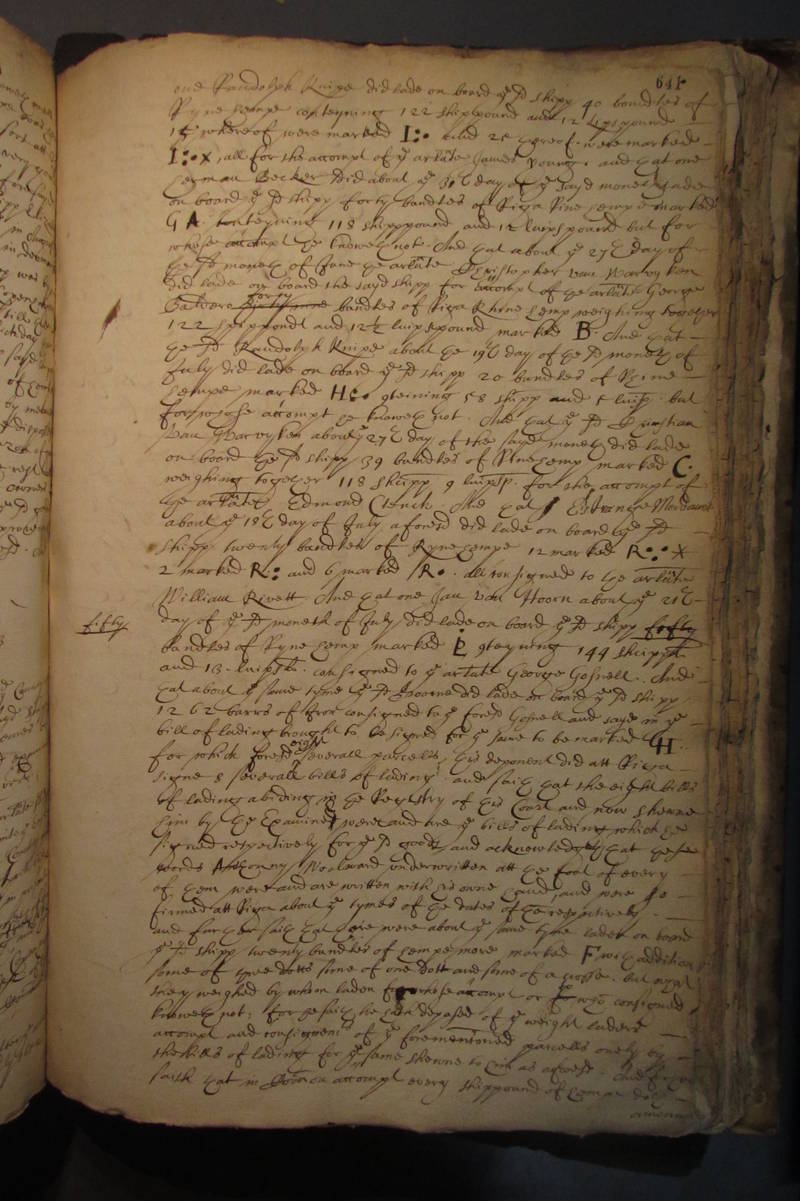 641.
one Randolph Knipe did lade on board ye sd shipp 40 bundles of
Ryne hempe conteyning 122 shippound and 12 lispound
14 whereof were marked I:• and 26 were marked
I:•x, all for the accompt of ye arlate James Young. and that one
Herman Becker did about ye day of ye sayd moneth lade
on board ye sd shipp forty bundles of Riga Rine hemp marked
G A. conteyning 118 shippound and 12 luispound but for
whose accompt he knoweth not. And that about ye 27th day of
the sd moneth of June the arlate Christopher van Warwyken
did lade on board the sayd shipp for accompt of the arlate George
forty bundles of Riga Rhine hemp weighing together
122 shippondt and 12½ luispound marked B. And that
the sd Randolph Knipe about the 19th day of the sd moneth of
July did lade on board ye sd shipp 20 bundles of Rine
hempe marked H:• 9teining 58 shipp and 5 luisp. but
for whose accompt he knoweth not. And that ye sd Christian
Van Warvyken about ye 27th day of the sayd moneth did lade
on board the sd shipp 39 bundles of Rine hemp marked C.
weighing together 118 shipp 9 luisp. for the accompt of
the arlate Edmond Clench And that Estrange Mordant
about ye 18th day of July aforesd did lade on board the sd
shipp twenty bundles of Rynehempe 12 marked R:•:x
2 marked R:• and 6 marked R•. all consigned to the arlate
William Rivett And that one Jan van Hoorn about ye 20th
day of ye sd moneth of July did lade on board ye sd shipp fifty
fifty
bundles of Ryne hemp marked E 9teyning 144 shipp
and 13 luisp. consigned to ye arlate George Gosnell. And
that about ye same tyme ye sd Hoorne did lade on board ye sd shipp
1262 barrs of Iron consigned to ye foresd Gosnell and says in ye
bill of lading brought to be signed for ye same to be marked H.
for which foresd eight severall parcells, this deponent did att Riga
signe 8 severall bills of lading and saith that the eight bills
of lading abiding in the Registry of this Court and now shewne
him by the Examiner were and are ye bills of lading which he
signed respectively for ye sd goods, and acknowledgeth that these
words Anthonny Woolward underwritten att the foot of every
of them were and are written with his owne hand, and were so
firmed att Riga about ye tymes of the dates of the respectively.
and further saith that there were about ye same tyme laden on board
ye sd shipp twenty bundles of hempe more marked F with addition
some of three dotts some of one dott and some of a crosse. but what
they weighed by whom laden for whose accompt or to who consigned
knoweth not; for he saith he hath deposed of ye weight laders
accompt and consignemt of ye forementioned parcells onely by
the bills of lading for ye same shewne to him as aforesd. And further
saith that in accompt every shippound of hemp doth
amount